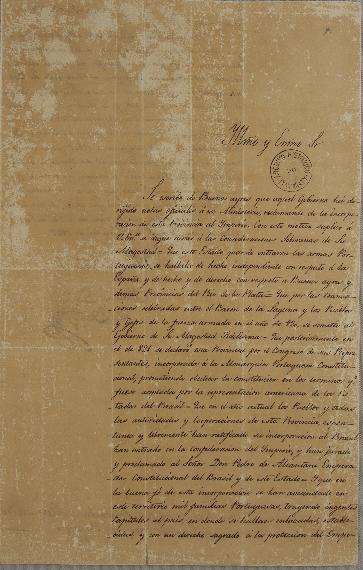 Illmo y Exmo Sr
Se sabe de Buenos ayres que aquel Gobierno ha di-
rigido notas oficiales á su Ministerio, reclamando de la incorpo-
racion de esta Provincia al Imperio. Con este motivo suplico á
V. Exa se digne llevar á la consideracion Soberana de Su
Magestad = Que este Estado quando entraron las armas Por-
tuguesas, se hallaba de hecho independiente con respeto á la
España y de hecho y de derecho con respeto a Buenos ayres y
demas Provincias del Rio de la Plata = Que por las transac-
ciones celebradas entre el Baron de la Laguna y los Pueblos
y Gefes de la fuerza armada en el año de 820, se sometió al
Gobierno de Su Magestad Fidelisima = Que posteriormente en
el de 821 se declaró esta Provincia por el Congreso de sus Repre
sentantes, incorporada á la Monarquia Portuguesa Constitu-
cional, prometiendo recibir la constitucion en los terminos q.
fuese acordada por la representacion americana de los Es-
tados del Brasil = Que en el año actual los Pueblos y todas
las autoridades y corporaciones de esta Provincia, espon-
tanea y libremente han ratificado su incorporacion al Brasil
han entrado en la confederacion del Imperio, y han jurado
y proclamado al Señor Don Pedro de Alcantara Empera
dor Constitucional del Brasil y de este Estado = Que en
la buena fé de esta incorporacion se han avecindado en
este territorio mil familias Portuguesas, trayendo ingentes
capitales al pais, en donde se hallan enlazadas, estable
cidas y con un derecho sagrado á la proteccion del Impe-